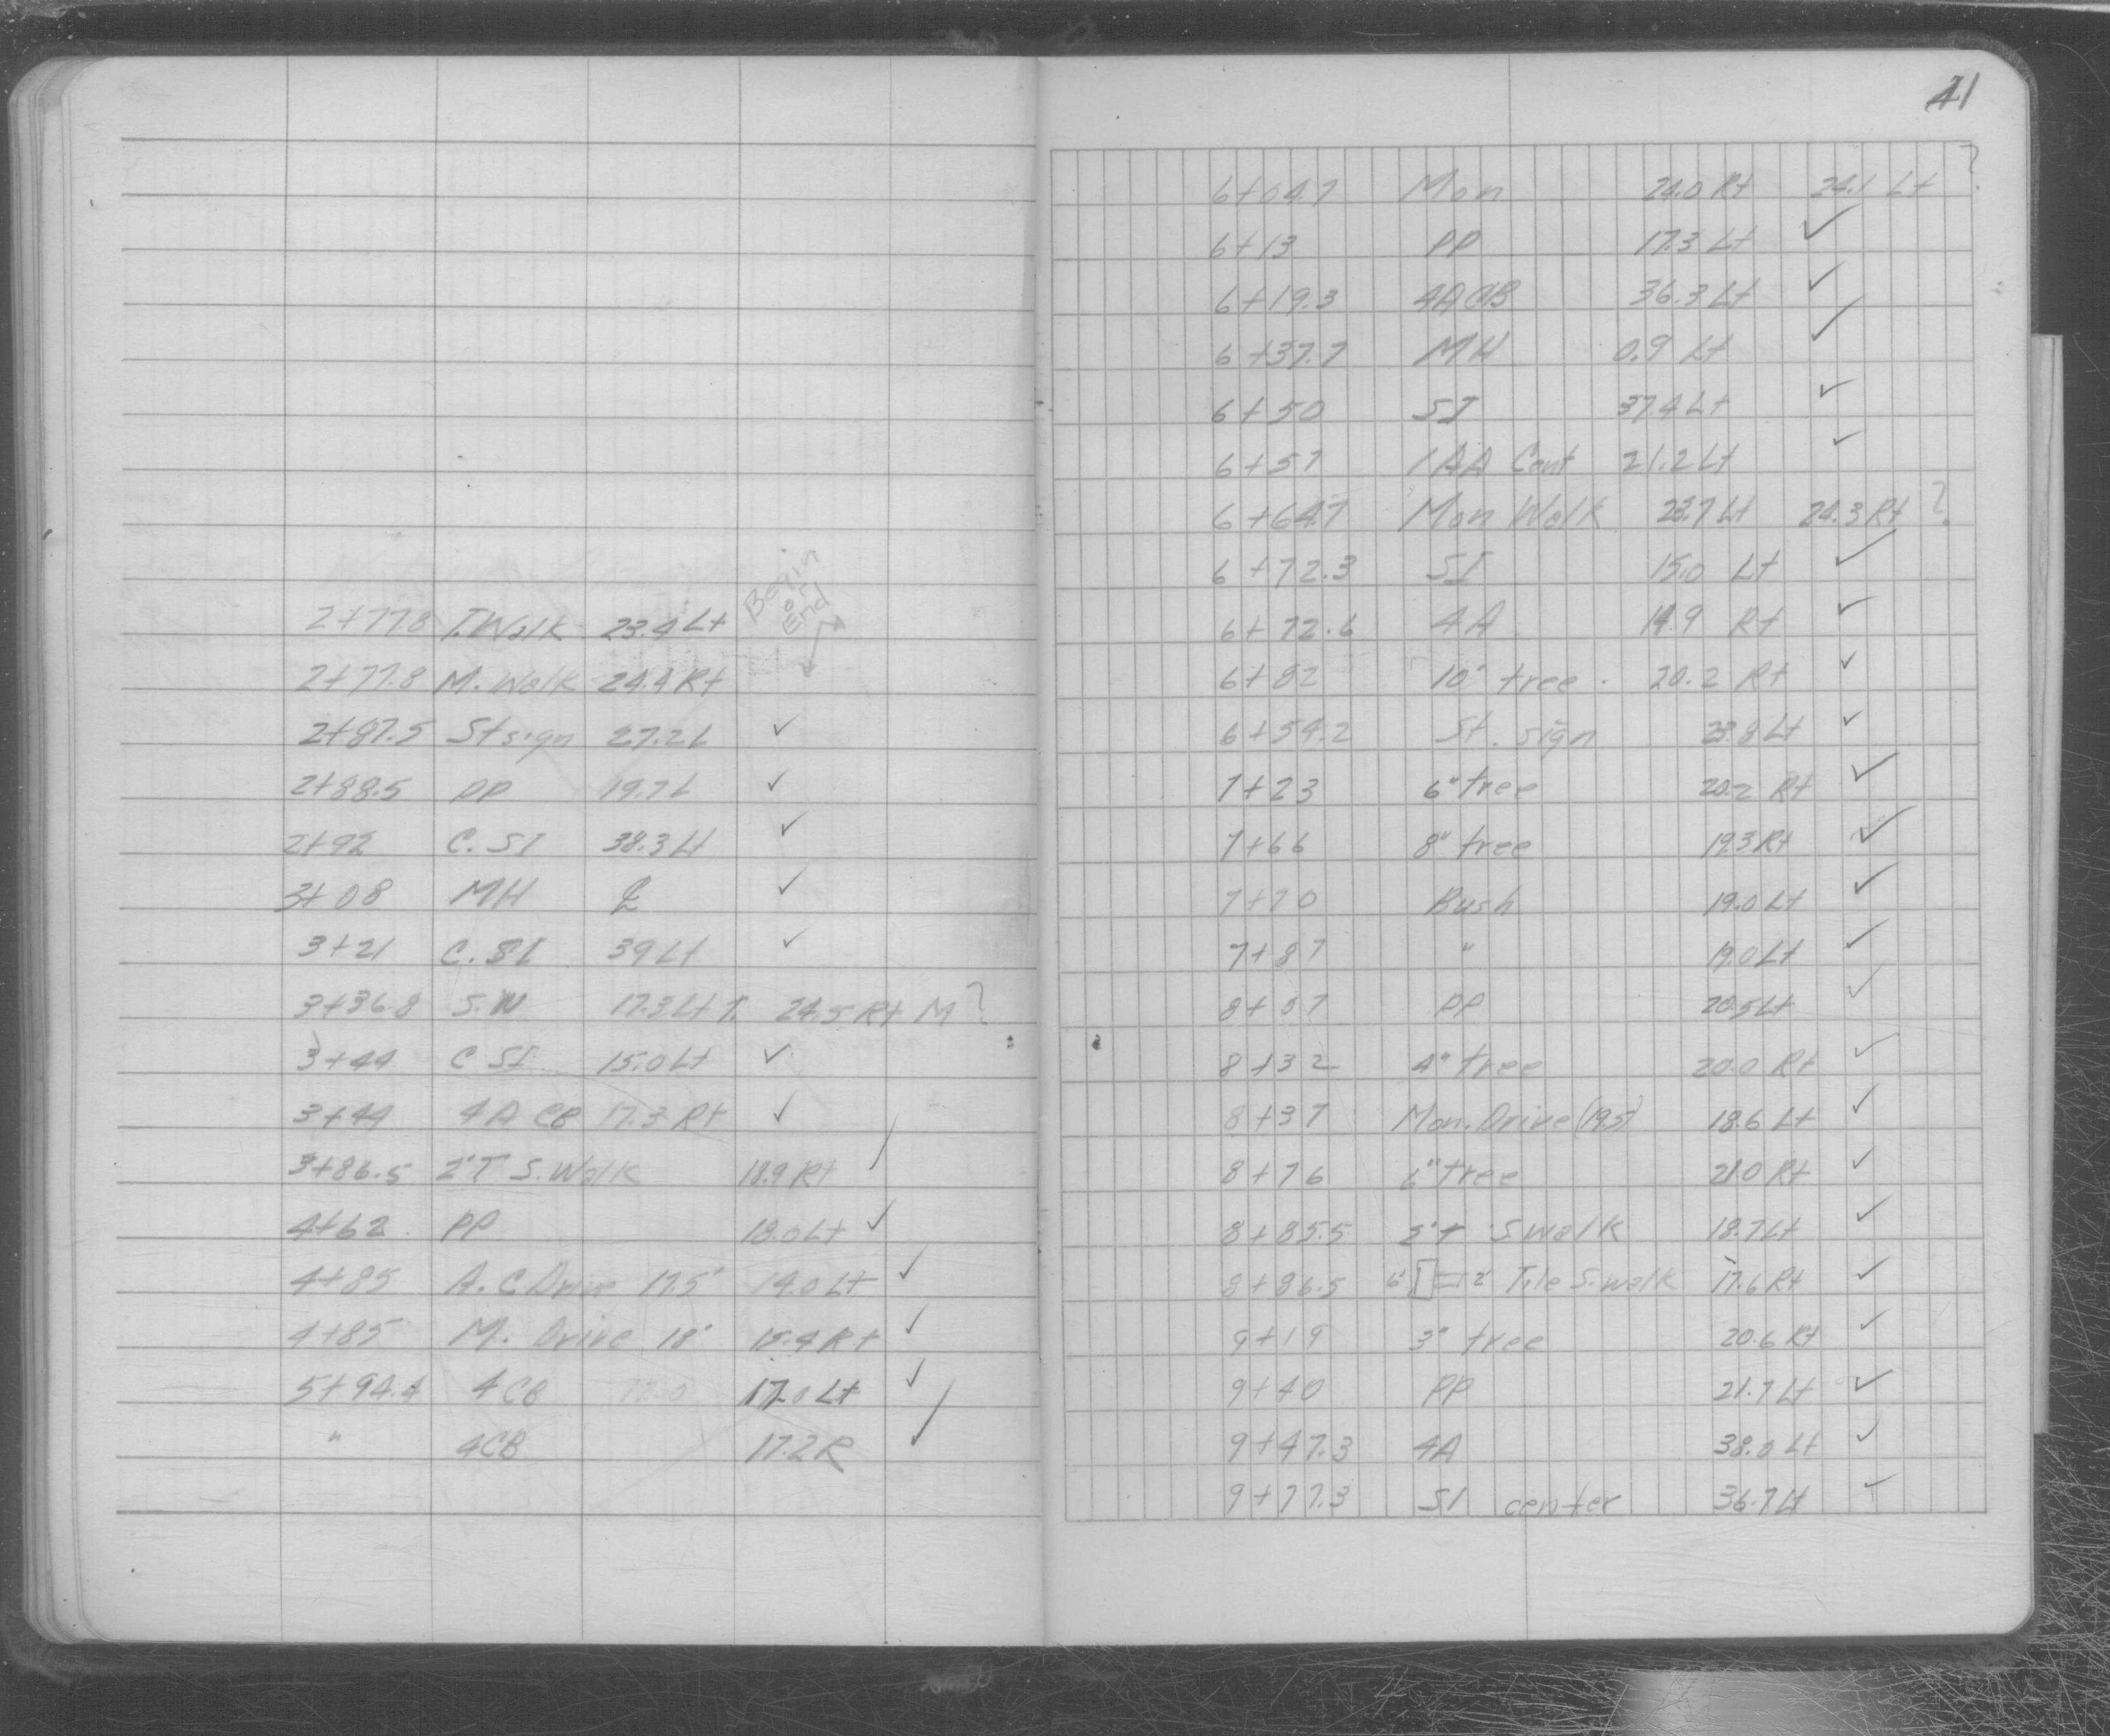 2+77.8 T.Walk 23.4 Lt Begin or End
2+77.8 M. Walk 24.4 Rt
2+87.5 St sign 27.2 L ✓
2+88.5 PP 19.7 L ✓
2+92 C. SI 38.3 Lt ✓
3+08 MH ℄ ✓
3+21 C. SI 39 Lt ✓
3+36.8 S.W 17.3 Lt T. 24.5 Rt M ?
3+44 C SI 15.0 Lt ✓
3+44 4 A CB 17.3 Rt ✓
3+86.5 2' T S. Walk 18.9 Rt ✓
4+62 PP 18.0 Lt ✓
4+85 A. C Drive 17.5' 14.0 Lt ✓
4+85 M. Drive 18' 15.4 Rt ✓
5+94.4 4 CB 17.0 17.0 Lt ✓
" 4CB 17.2 R ✓
41
6+04.7 Mon 24.0 Rt 24.1 Lt ?
6+13 PP 17.3 Lt ✓
6+19.3 4A CB 36.3 Lt ✓
6+37.7 MH 0.9 Lt ✓
6+50 SI 37.4 Lt ✓
6+57 1 AA Cent 21.2 Lt ✓
6+64.7 Mon Walk 23.7 Lt 24.3 Rt ?
6+72.3 SI 15.0 Lt ✓
6+72.6 4A 14.9 Rt ✓
6+82 10" tree 20.2 Rt ✓
6+59.2 St. sign 23.8 Lt ✓
7+23 6" tree 20.2 Rt ✓
7+66 8" tree 19.3 Rt ✓
7+70 Bush 19.0 Lt ✓
7+87 " 19.0 Lt ✓
8+07 PP 20.5 Lt ✓
8+32 4" tree 20.0 Rt ✓
8+37 Mon. Drive (19.5) 18.6 Lt ✓
8+76 6" tree 21.0 Rt ✓
8+85.5 2' T S walk 18.7 Lt ✓
8+86.5 6' 2' Tile S. walk 17.6 Rt ✓
9+19 3" tree 20.6 Rt ✓
9+40 PP 21.7 Lt ✓
9+47.3 4A 38.0 Lt ✓
9+77.3 SI center 36.7 Lt ✓